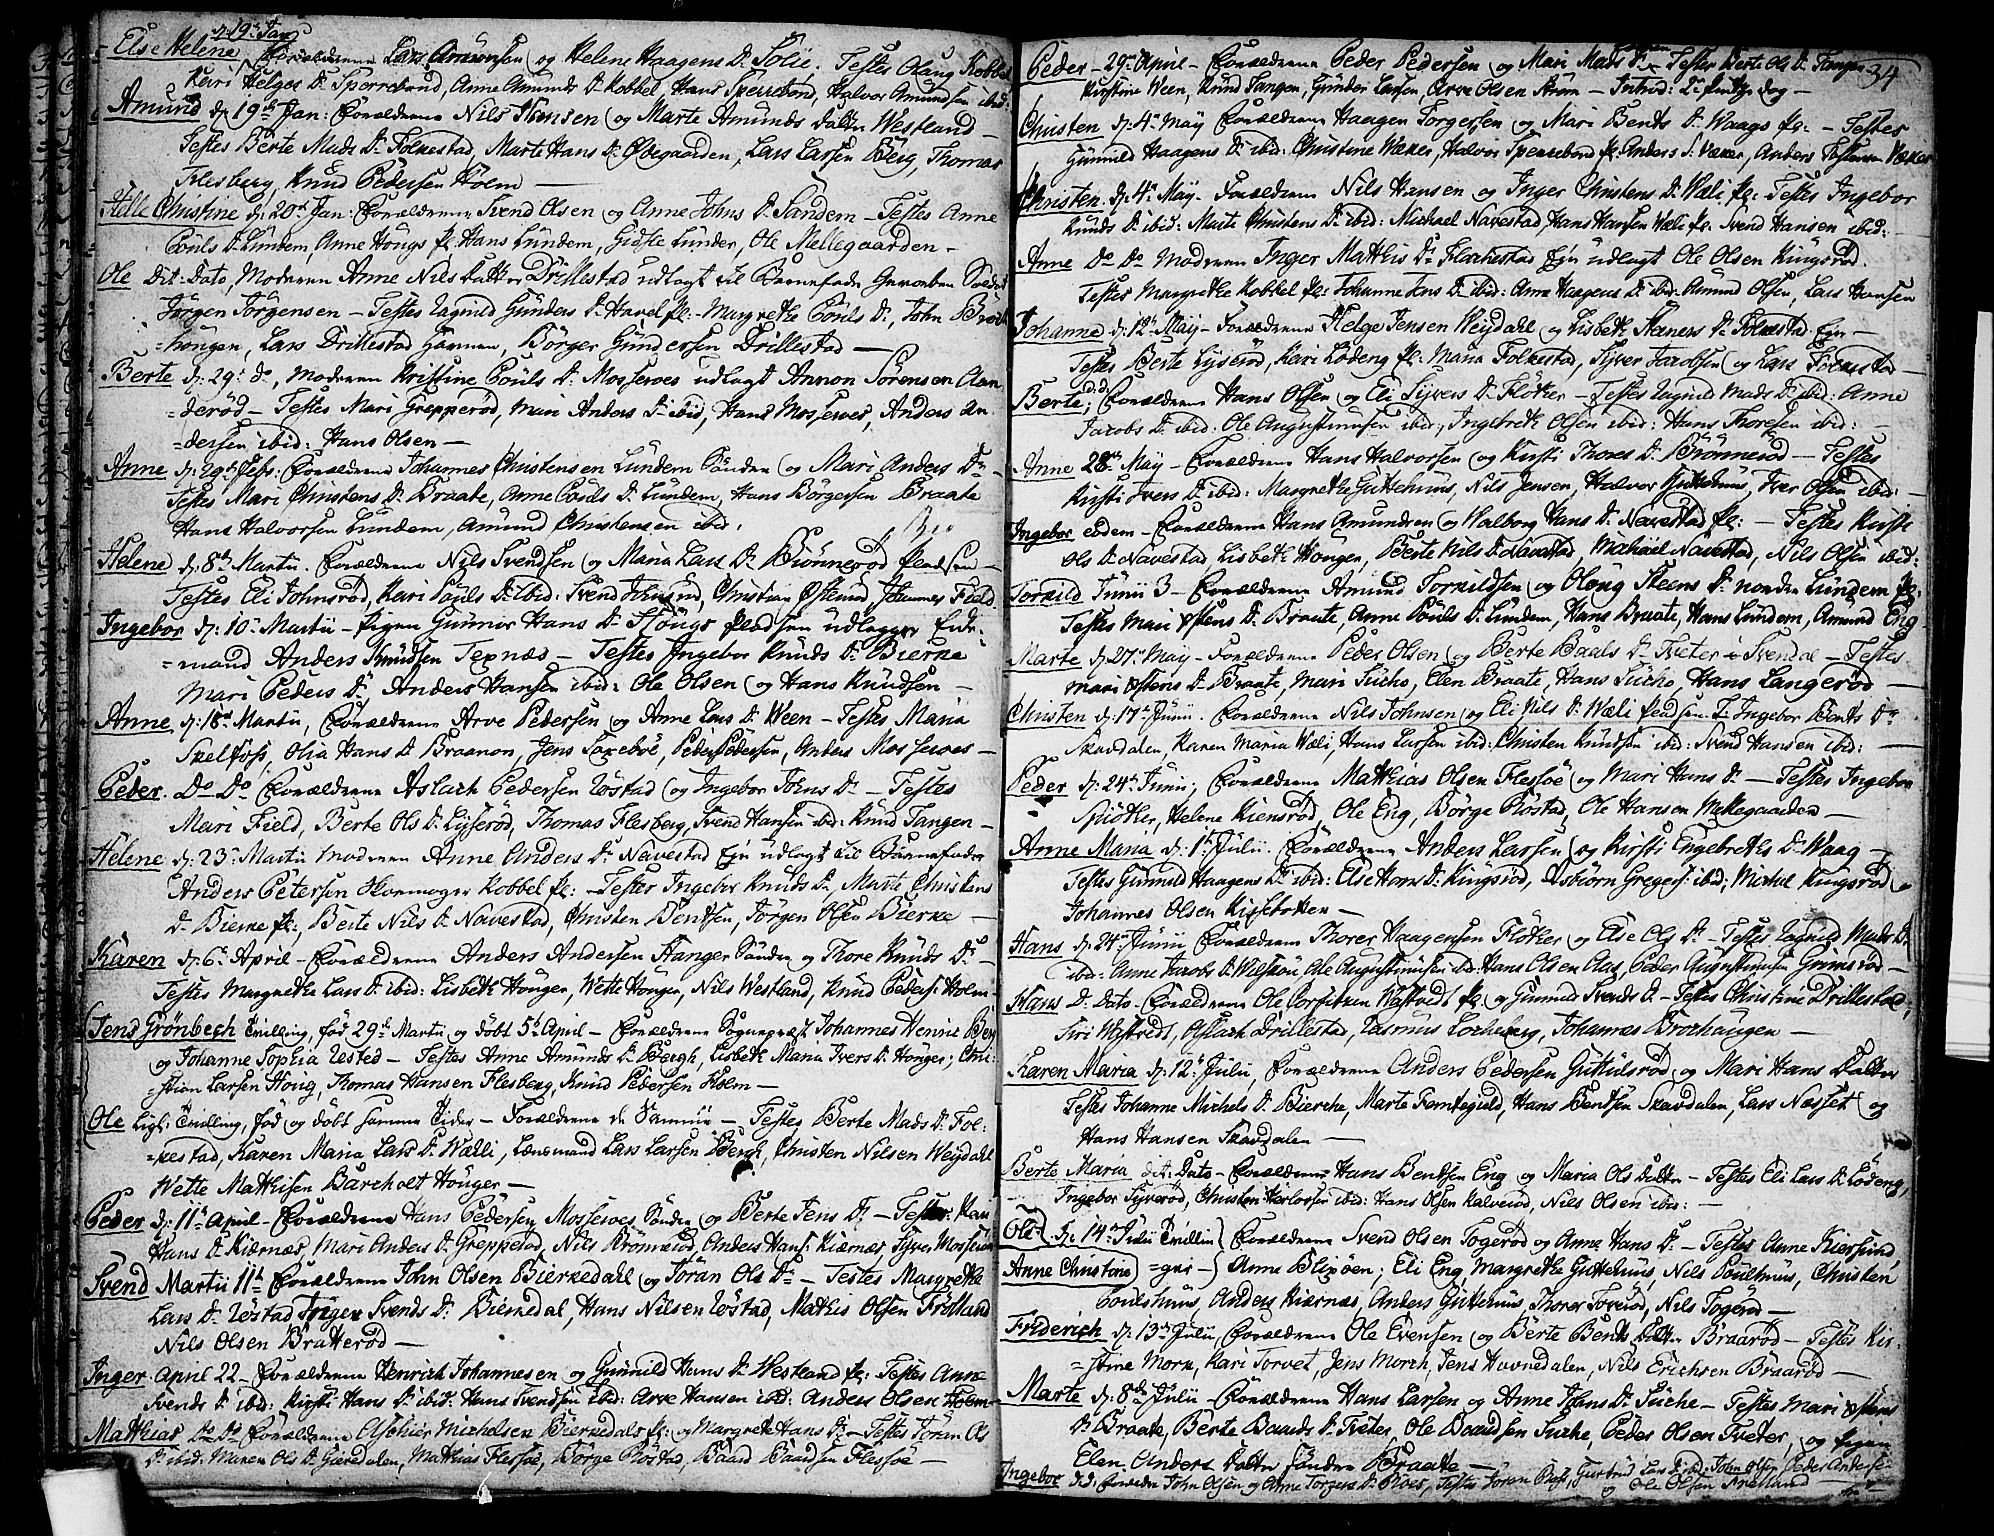 d: 19de Jan:
Else Helene Forældrene Lars Amundsen og Helene Haagens D. Solie. Testes Olaug Kobbel
Kari Helges D. Sperrebond, Anne Amunds D. Kobbel, Hans Sperrebond, Halvor Amundsen ibid:
Amund d: 19de Jan: Forældrene Nils Hansen og Marte Amunds Datter Westland —
Testes Berte Mads D. Folkestad, Marte Hans D. Ødegaarden, Lars Larsen Berg, Thomas
Flesberg, Knud Pedersen Holm —
Helle Christine d: 20de Jan: Forældrene Svend Olsen og Anne Johns D. Sandem — Testes Anne
Pouls D. Lundem, Anne Hougs pl: Hans Lundem, Gidske Lunder, Ole Mellegaarden —
Ole Dit: Dato, Moderen Anne Nils Datter Drillestad udlagt til Barnefader Gevorben Soldat
Jörgen Jörgensen — Testes Ragnild Gunders D. Havel pl: Margrethe Pouls D., John Brok
=hougen, Lars Drillestad, Börger Gundersen Drillestad —
Berte d: 29de do, Moderen Kristine Pouls D. Mosseroes udlagt Annon Sörensen Aan
=deröd — Testes Mari Grepperöd, Mari Anders D. ibid, Hans Mosseroes, Anders An
=dersen ibid: Hans Olsen —
Anne d: 29de Febr: Forældrene Johannes Christensen Lundem Söndre og Mari Anders D. —
Testes Mari Christens D. Braate, Anne Pouls D. Lundem, Hans Börgersen Braate
Hans Halvorsen Lundem, Amund Christensen ibid.
Helene d: 8de Martii. Forældrene Nils Svendsen og Maria Lars D. Biönneröd Pladsen —
Testes Eli Johnsröd, Kari Pouls D. ibid: Svend Johnsröd, Christian Östlund Johannes Field
Ingebor d: 10de Martii — Pigen Gunnor Hans D. Hougs pladsen udlagge Enke-
=mand Anders Knudsen Texnæs — Testes Ingebor Knuds D. Bierke
Mari Peders D. Anders Hansen ibid: Ole Olsen og Hans Knudsen —
Anne d: 18de Martii, Forældrene Arve Pedersen og Anne Lars D. Ween — Testes Maria
Skelfoss, Olia Hans D. Braanon, Jens Saxeböe, Peder Pedersen, Anders Mosseroes —
Peder. Do Do Forældrene Aslach Pedersen Röstad og Ingebor Johns D. — Testes
Mari Field, Berte Ols D. Lyseröd, Thomas Flesberg, Svend Hansen ibid: Knud Tangen —
Helene d: 23de Martii Moderen Anne Anders D. Navestad Ejn udlagt til Barnefader
Anders Petersen Kobbel pl: — Testes Ingebor Knuds D., Marte Christens
D. Bierke pl:, Berte Nils D. Navestad, Christen Bentsen, Jörgen Olsen Bierke —
Karen d: 6te April — Forældrene Anders Andersen Hanger Söndre og Thore Knuds D. —
Testes Margrethe Lars D. ibid: Lisbeth Houger, Wette Houger, Nils Westland, Knud Peders: Holm
Jens Grönbech Tvilling, föd 29de Martii og döbt 5te April — Forældrene Sognepræst Johannes Henric Berg
og Johanne Sophia Ursted — Testes Anne Amunds D. Bergh, Lisbeth Maria Ivers D. Houger; Chri-
=stian Larsen Houg, Thomas Hansen Flesberg, Knud Pedersen Holm —
Ole ligl: Tvilling, föd og döbt samme Tider — Forældrene de Samme — Testes Berte Mads D. Fol-
=kestad, Karen Maria Lars D. Wælli, Lænsmand Lars Larsen Bergh, Christen Nilsen Weydahl
Wette Mathisen Barcholt Houger —
Peder d: 11te April — Forældrene Hans Pedersen Mosseroes Söndre og Berte Jens D. — Testes: Kari
Hans D. Kiærnæs, Mari Anders D. Grepperöd, Nils Brönneröd, Anders Hans: Kiærnæs, Syver Mosseroes
Svend Martii 11te Forældrene John Olsen Bierkedahl og Joran Ols D. — Testes Margrethe
Lars D. Röstad, Inger Svends D. Bierkedal, Hans Nilsen Röstad, Mathis Olsen Frölland
Nils Olsen Bratteröd —
Inger April 22 — Forældrene Henrich Johannesen og Gunnild Hans D. Westland pl: Testes Anne
Svends D. ibid: Kirsti Hans D. ibid: Hans Svendsen ibid: Arve Hansen ibid: Anders Olsen Holm —
Mathias Do Do Forældrene Aschier Michelsen Bierkedals pl: og Margrethe Hans D. — Testes Joran Ols
D. ibid: Maren Ols D. Gieredalen, Mathias Flessöe, Börge Röstad, Baard Baardsen Flessöe —
34
Peder — 29de April — Forældrene Peder Pedersen og Mari Mads D. — Testes Berte Ols D. Tangen
Kirstine Ween, Knud Tangen, Gunder Larsen, Arve Olsen Ström — Introd: 2den Pintse dag —
Christen d: 4de May Forældrene Haagen Torgersen og Mari Bents D. Waags pl: — Testes
Gunnild Haagens D. ibid: Christine Wæker, Halvor Sperrebond pl: Anders S: Væker, Anders Tostensen Wæker
Christen d: 4de May — Forældrene Nils Hansen og Inger Christens D. Wæli pl: Testes Ingebor
Knuds D. ibid: Marte Christens D. ibid: Michael Navestad, Hans Hansen Wæli pl: Svend Hansen ibid:
Anne Do Do Moderen Inger Mathis D. Folkestad Ejn udlagt Ole Olsen Kingsröd.
Testes Margrethe Kobbel pl: Johanne Jens D. ibid: Anne Haagens D. ibid: Amund Olsen, Lars Hansen
Johanne d: 12te May — Forældrene Helge Jensen Weydahl og Lisbeth Steners D. Folkestad Ejn —
Testes Berte Lyseröd, Kari Lödeng pl: Maria Folkestad, Syver Jacobsen og Lars Folkestad —
Berte d:d: Forældrene Hans Olsen og Eli Syvers D. Flöter — Testes Ragnild Mads D. ibid: Anne
Jacobs D. ibid: Ole Augustinusen ibid, Ingebreth Olsen ibid: Hans Thoresen ibid: —
Anne 28de May — Forældrene Hans Halvorsen og Kirsti Thores D. Brönneröd — Testes
Kirsti Ivers D. ibid: Margrethe Guttehuus, Nils Jensen, Halvor Guttehuus, Iver Olsen ibid: —
Ingebor ebdem — Forældrene Hans Amundsen og Walborg Hans D. Navestad pl: — Testes Kirsti
Ols D. Navestad, Lisbeth Houger, Berte Nils D. Navestad, Michael Navestad, Nils Olsen ibid:
Torkild Junii 3 — Forældrene Amund Torkildsen og Oloug Steens D. nordre Lundem pl:
Testes Mari Östens D. Braate, Anne Pouls D. Lundem, Hans Braate, Hans Lundem, Amund Eng
Marte d: 27de May — Forældrene Peder Olsen og Berte Baals D. Tveter i Svendal — Testes
Mari Östens D. Braate, Mari Suche, Elen Braate, Hans Suche, Hans Langeröd —
Christen d: 17de Junii. Forældrene Nils Johnsen og Eli Nils D. Wæli Pladsen. T: Ingebor Bents D.
Skavdalen, Karen Maria Wæli, Hans Larsen ibid: Christen Knudsen ibid: Svend Hansen ibid: —
Peder d: 24de Junii, Forældrene Mathias Olsen Flessöe og Mari Hans D. — Testes Ingebor
Spiöther, Helene Kiensröd, Ole Eng, Börge Röstad, Ole Hansen Mellegaarden —
Anne Maria d: 1te Julii. Forældrene Anders Larsen og Kirsti Engebreths D. Waag —
Testes Gunnild Haagens D. ibid: Else Hans D. Kingsröd, Asbiörn Gregers: ibid; Michel Kingsröd og
Johannes Olsen Kissebotten —
Hans d: 24de Junii Forældrene Thorer Haagensen Flöther og Else Ols D. — Testes Ragnild Mads D.
ibid: Anne Jacobs D. Ole Augustinusen ibid: Hans Olsen Aas, Peder Augustinusen Grimsröd —
Hans D. Dato — Forældrene Ole Porsitken Westvedt pl: og Gunnild Svends D. — Testes Christine Drillestad,
Siri Westvedt, Aslach Drillestad, Rasmus Locheberg, Johannes Brochaugen —
Karen Maria d: 12te Julii, Forældrene Anders Pedersen Guttulsröd og Mari Hans Datter
Testes Johanne Michels D. Bierche, Marte Femtegield, Hans Bentsen Skavdalen, Lars Næsset og
Hans Hansen Skavdalen —
Berte Maria dit: Dato — Forældrene Hans Bentsen Eng og Maria Ols Datter — Testes Eli Lars D. Lödeng,
Ingebor Syveröd, Christen Halvorsen ibid: Hans Olsen Kalveröd, Nils Olsen ibid: —
Ole d: 14de Julii Tvillin Forældrene Svend Olsen Togeröd og Anne Hans D. — Testes Anne Kiersund
Anne Christine =ger — Anne Blixöen; Eli Eng, Margrethe Guttehuus, Nils Poulshuus, Christen
Poulshuus, Anders Kiærnæs, Anders Guttehuus, Thorer Toreröd, Nils Togeröd —
Friderich d: 13de Julii, Forældrene Ole Evensen og Berte Bents Datter Braaröd — Testes Kir-
=stine Mork, Kari Torvet, Jens Morch, Jens Havnedalen, Nils Erichsen Braaröd —
Marte d: 8de Julii — Forældrene Hans Larsen og Anne Johans D. Suche — Testes Mari Östens
D. Braate, Berte Baards D. Tveter, Ole Baardsen Suche, Peder Olsen Tveter, og Pigen
Elen Anders Datter Söndre Braate —
Ingebor d:d: Forældre John Olsen og Anne Torgers D. Moes, Testes Joran Gurbrud Lars D. ibid: John Olsen Peder Anderse
og Ole Olsen Frölland